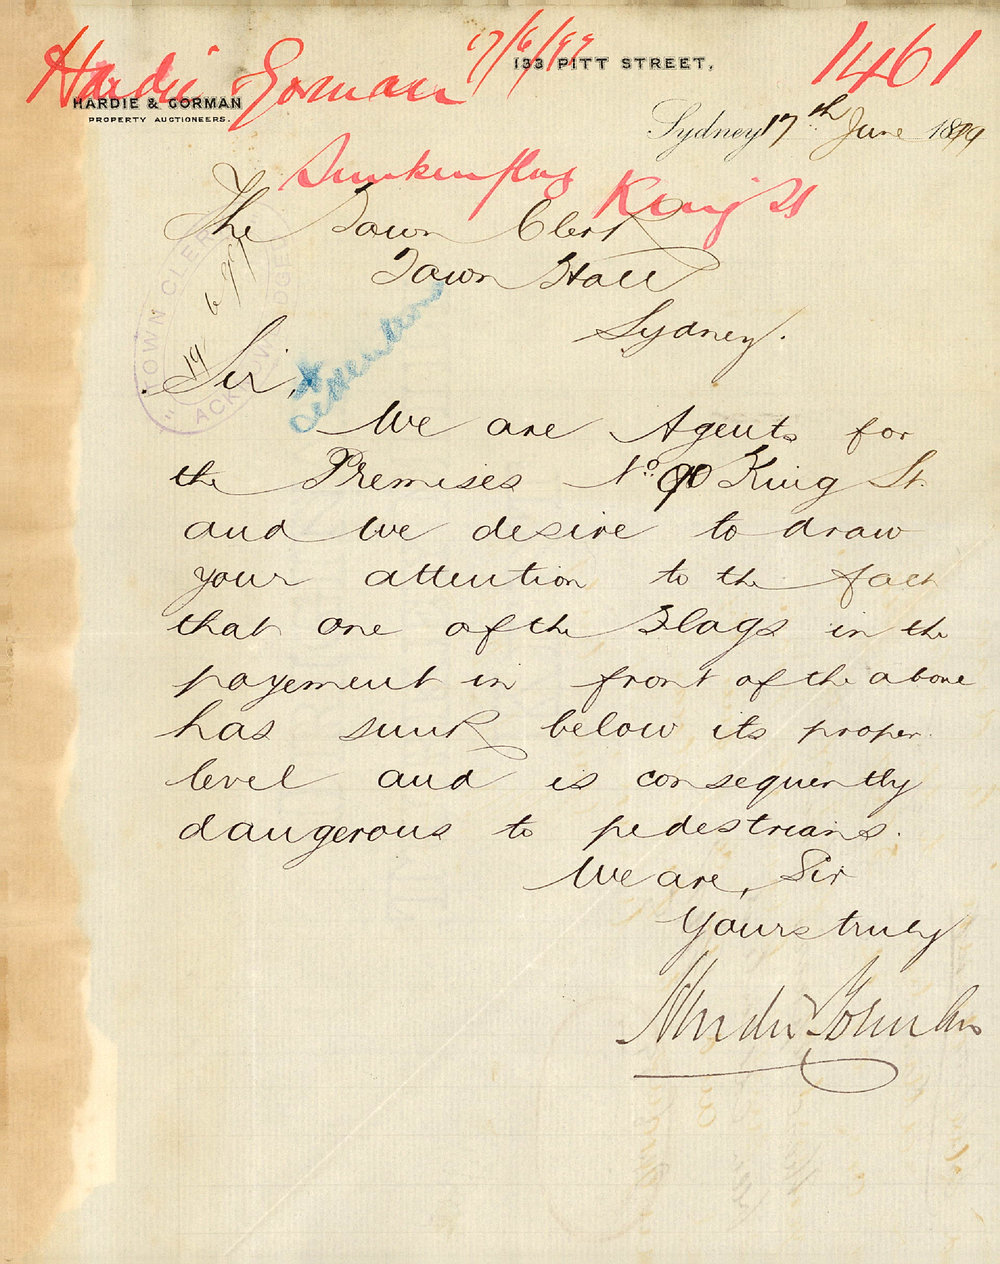 Hardie & Gorman 17/6/99 1461
133 PITT STREET,
HARDIE & GORMAN
PROPERTY AUCTIONEERS.
Sydney 17th June 1899
Sunken flag King St
The Town Clerk
Town Hall
Sydney.
"TOWN CLERK"
19 6 99
ACKNOWLEDGED
Sir,
We are Agents for
the Premises No. 90 King St.
and we desire to draw
your attention to the fact
that one of the Flags in the
pavement in front of the above
has sunk below its proper
level and is consequently
dangerous to pedestrians.
We are, Sir
Yours truly
Hardie & Gorman